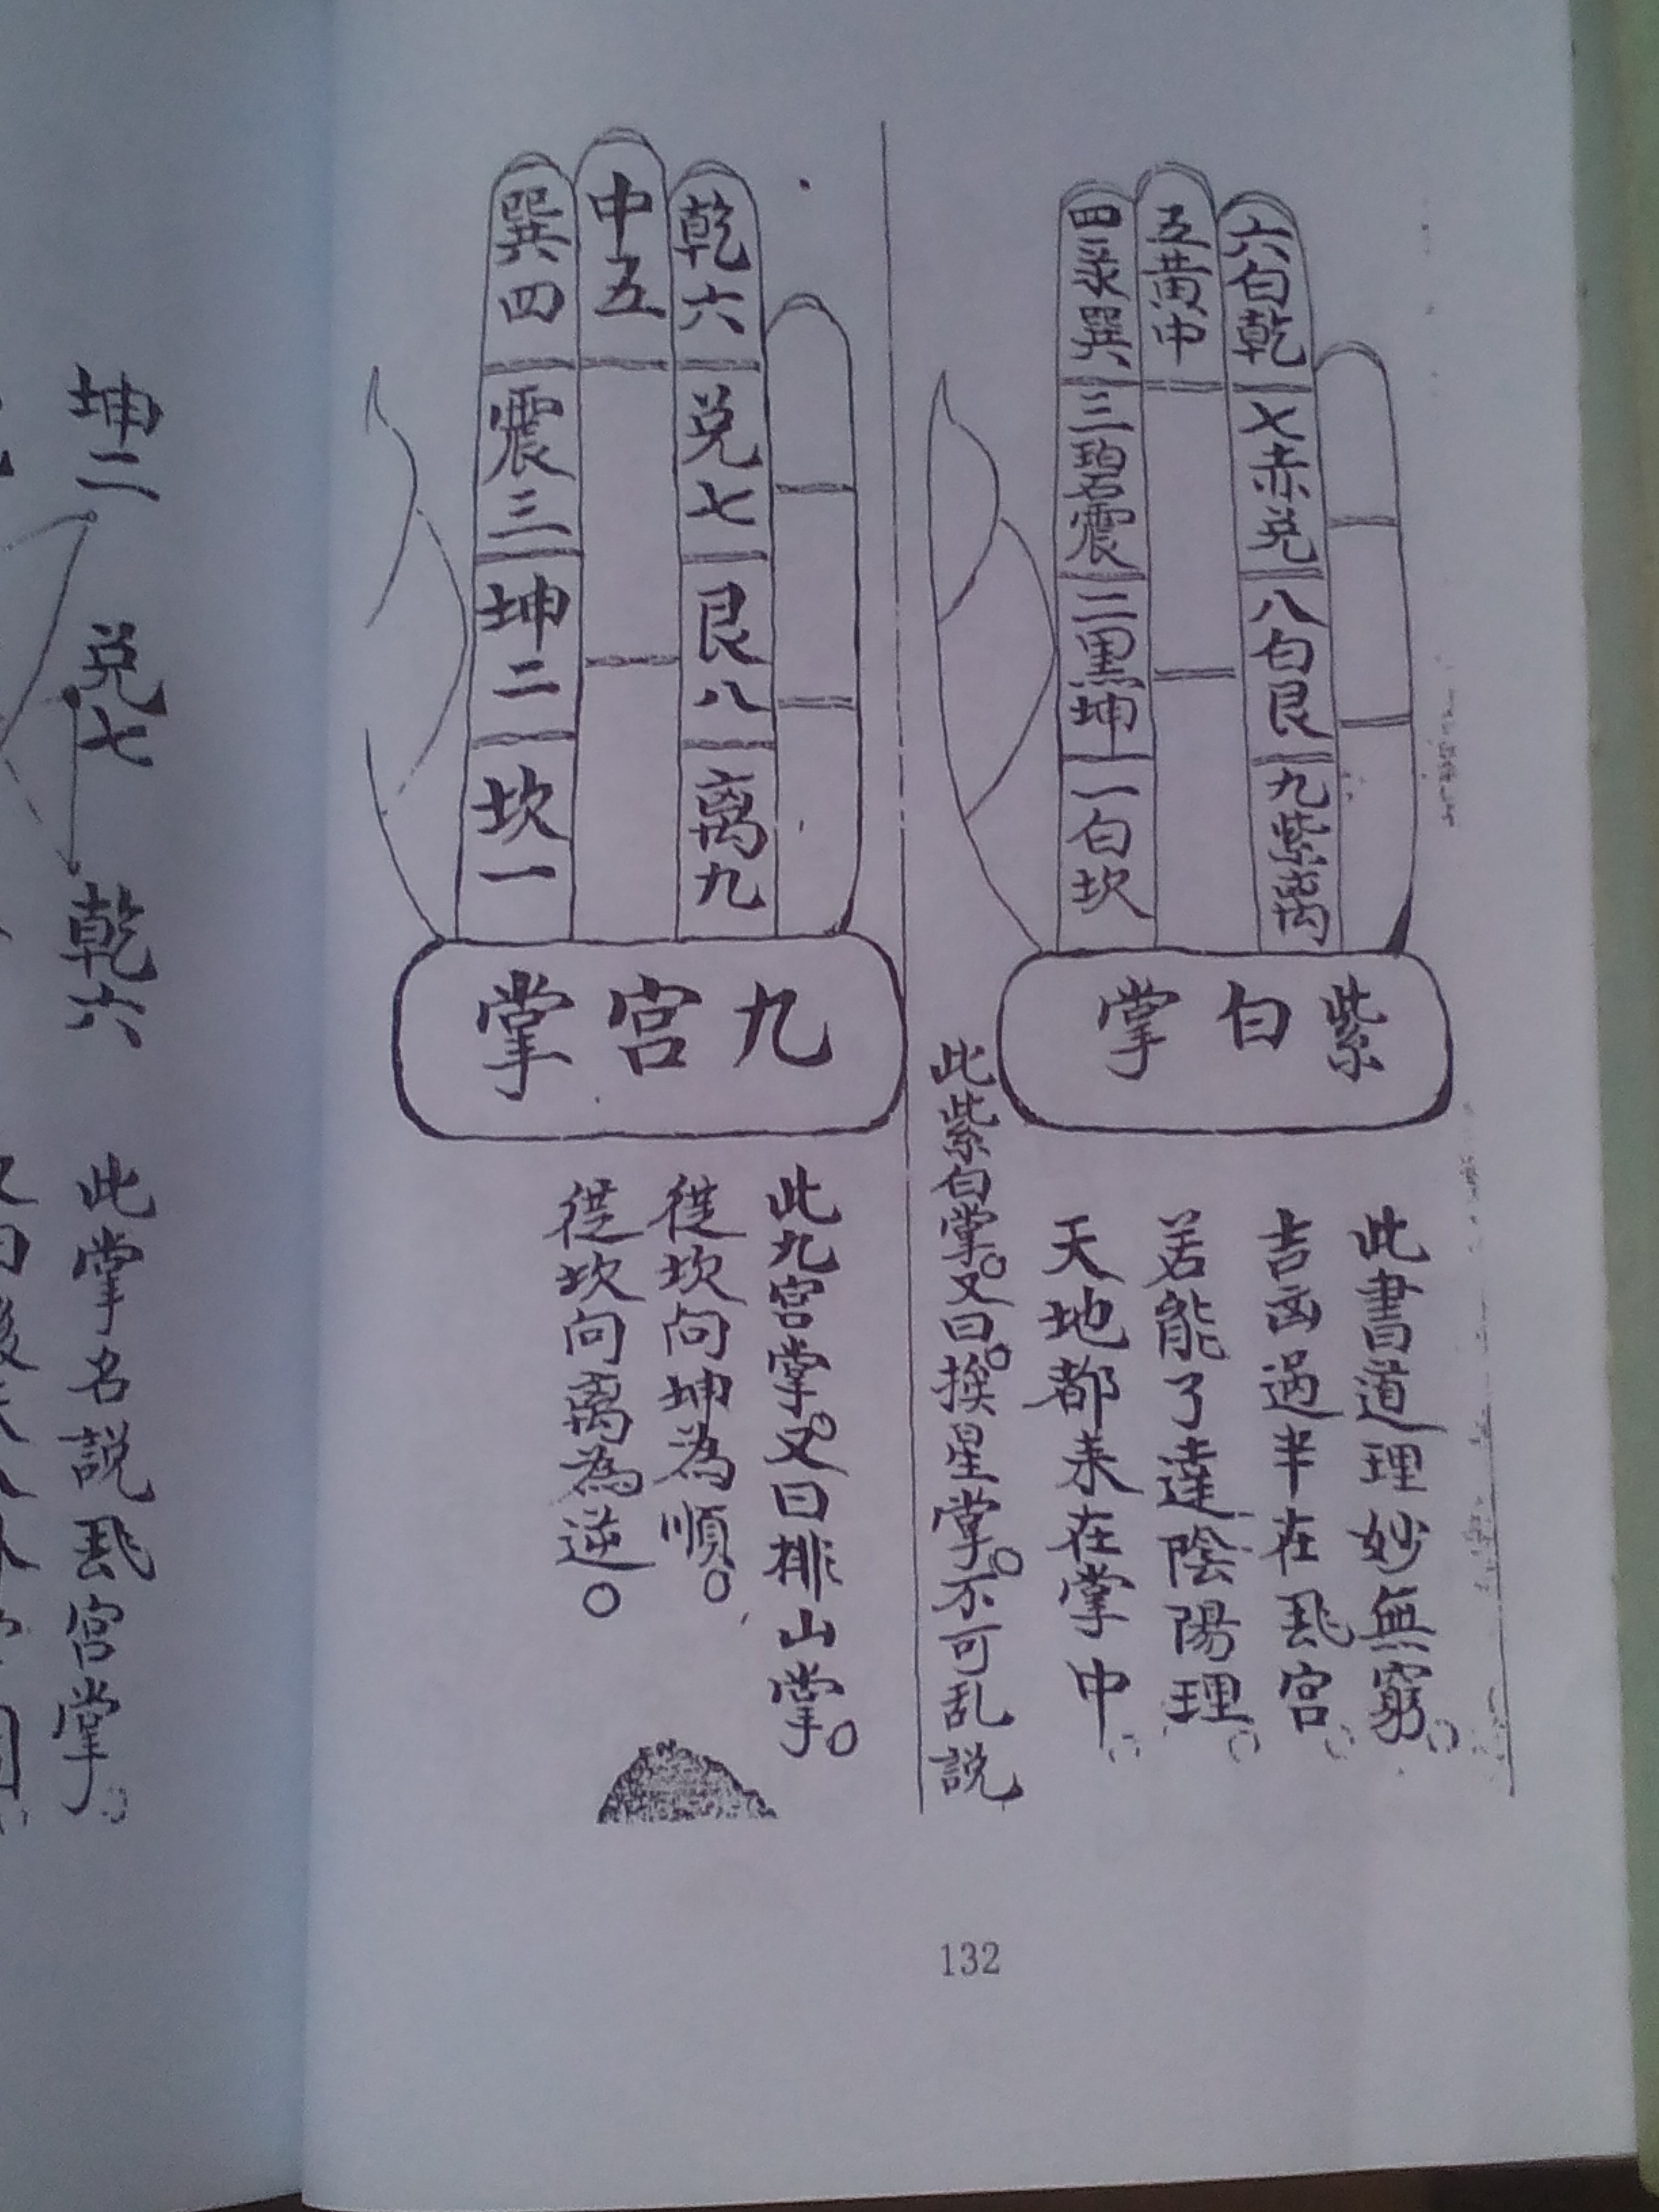 六白乾
七赤兑
八白艮
九紫离
五黄中
四录巽
三碧震
二黑坤
一白坎
紫白掌
此書道理妙無窮。
吉凶過半在飛宮。
若能了達陰陽理。
天地都來在掌中。
此紫白掌。又曰。挨星掌。不可乱説
乾六
兑七
艮八
离九
中五
巽四
震三
坤二
坎一
九宮掌
此九宮掌。又曰排山掌。
從坎向坤為順。
從坎向离為逆。
132
坤二
兑七
乾六
此掌名説飛宮掌。